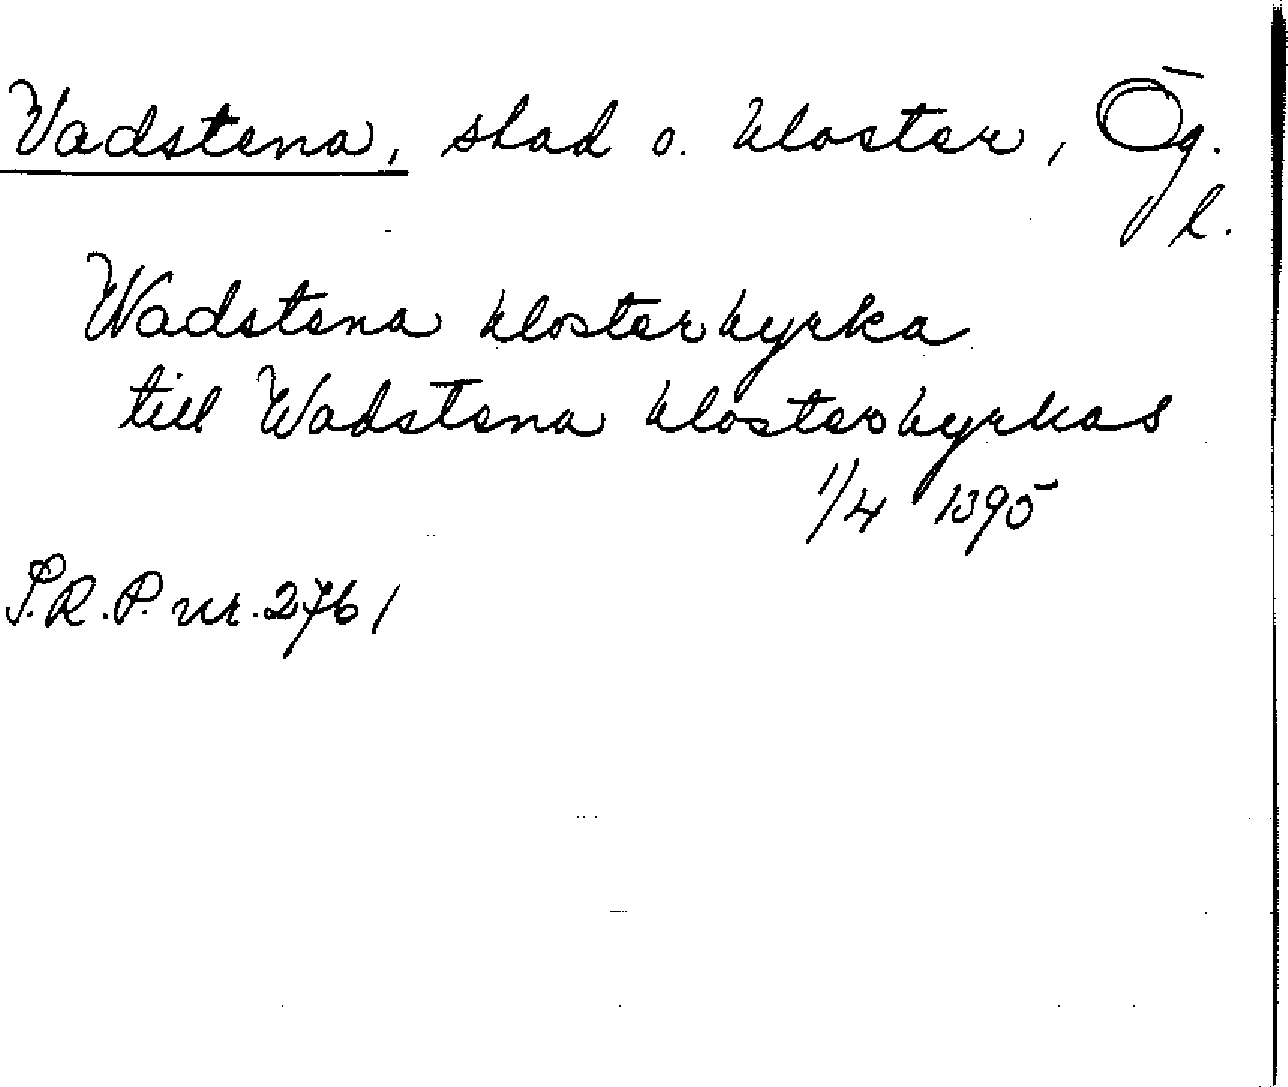 Vadstena, stad o. kloster, Ög.
l.
Wadstena klosterkyrka
till Wadstena klosterkyrkas
1/4 1395
S.R.P. nr. 2761